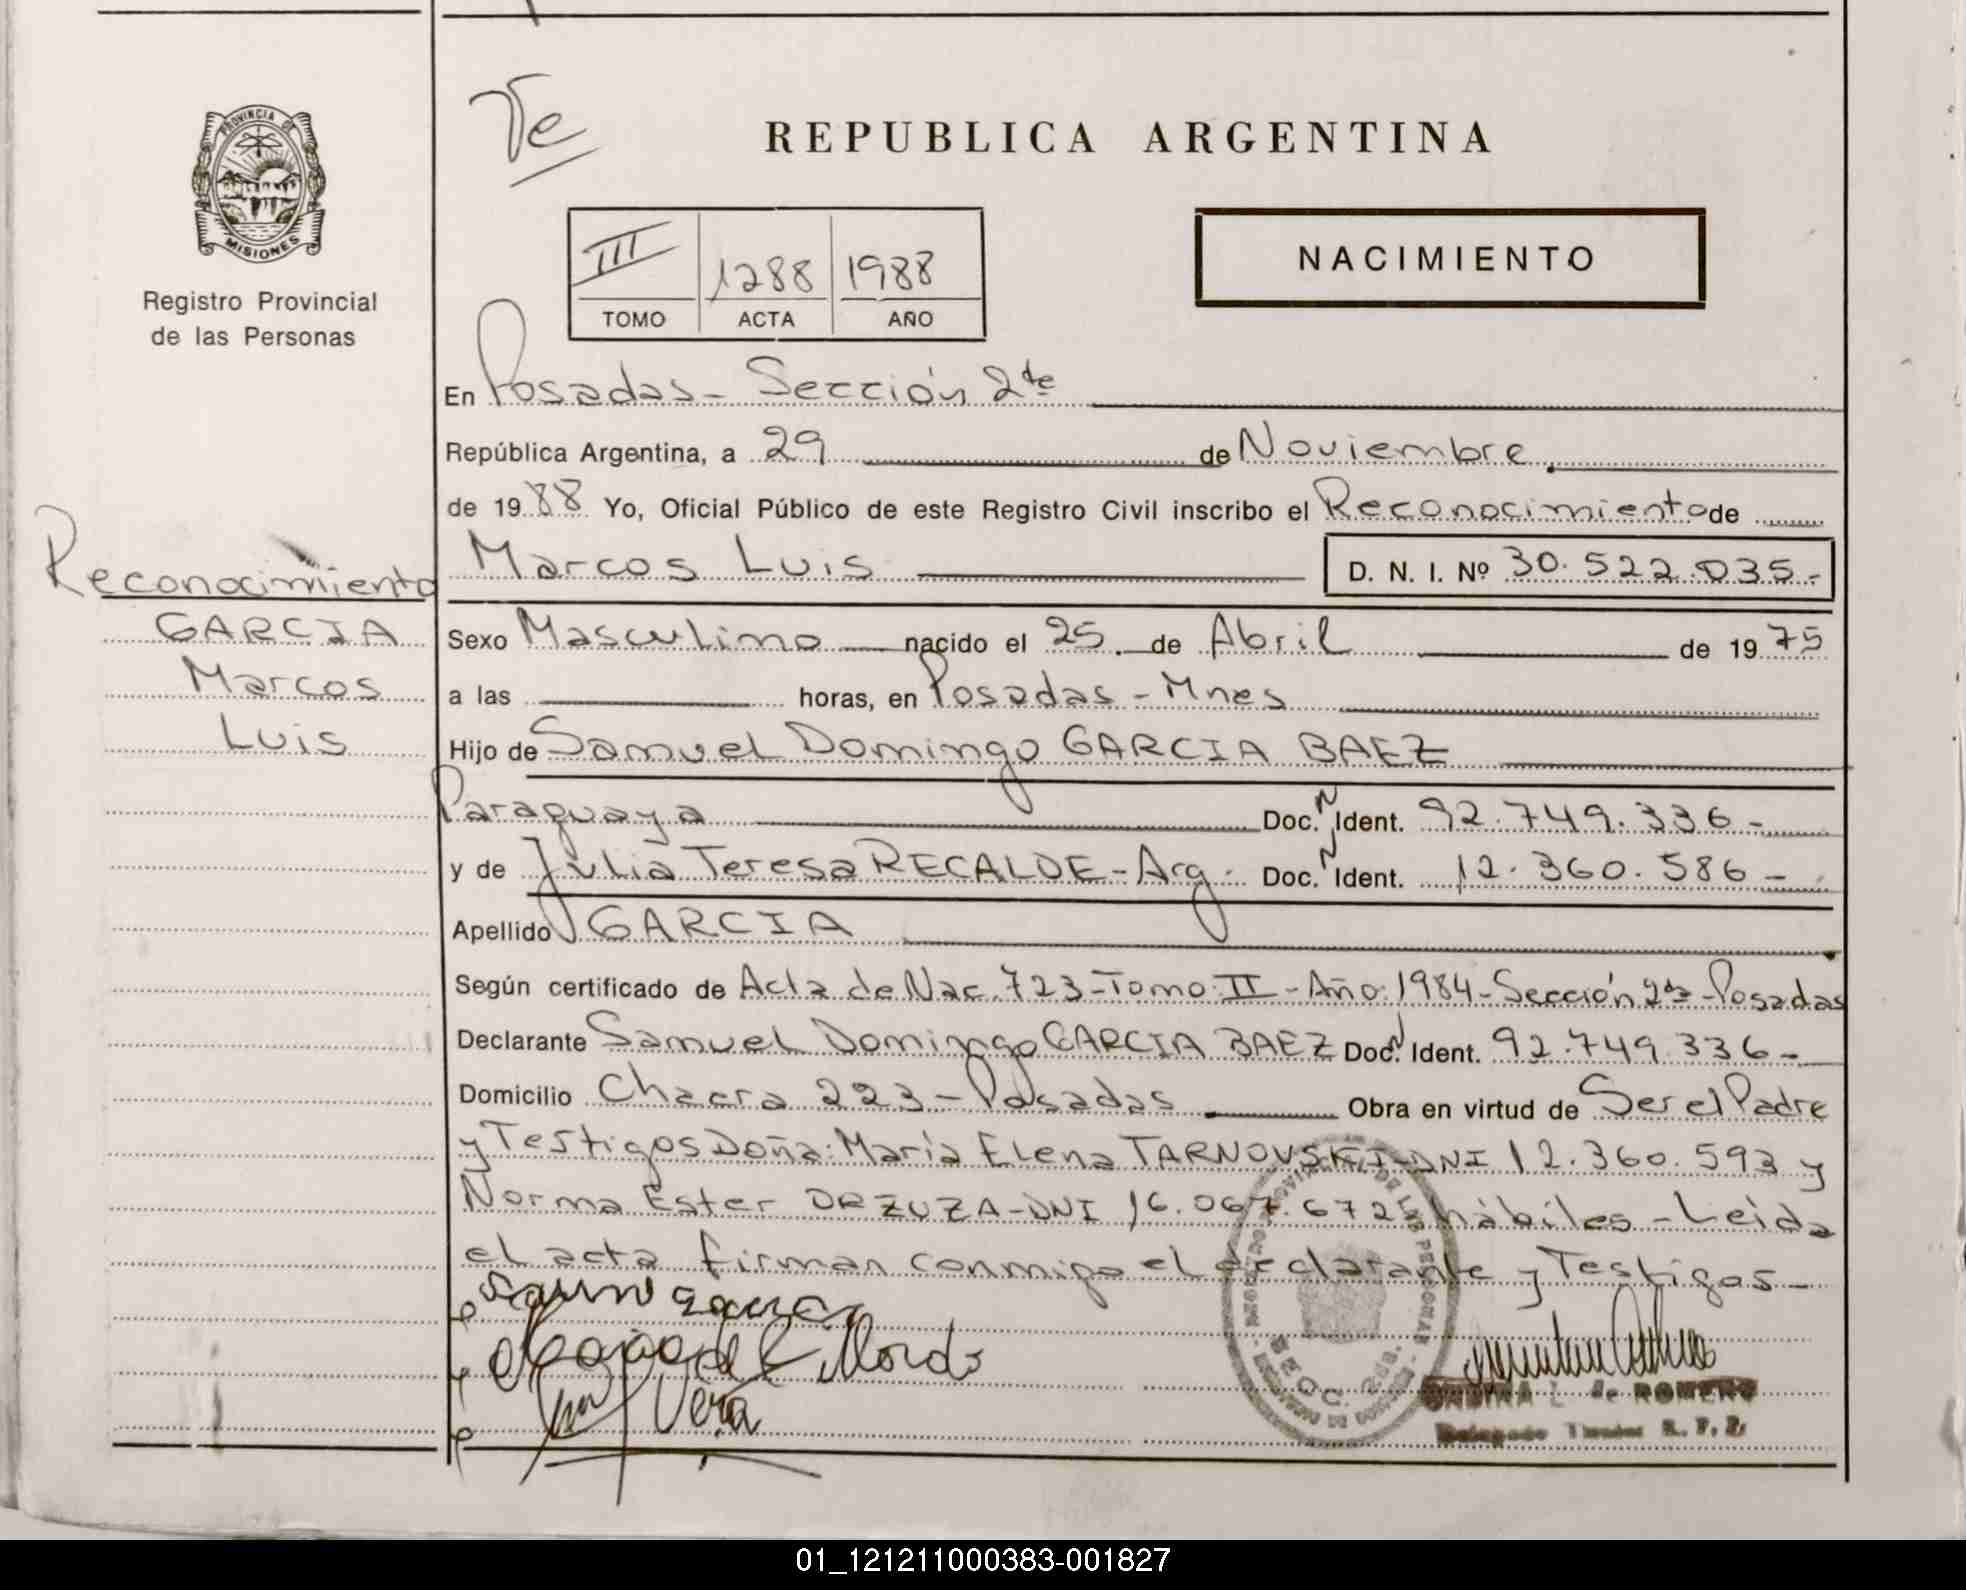 PROVINCIA DE
MISIONES
Registro Provincial
de las Personas
Reconocimiento
GARCIA
Marcos
Luis
Te
REPUBLICA ARGENTINA
NACIMIENTO
III 1288 1988
TOMO ACTA AÑO
En Posadas - Sección 2da
República Argentina, a 29 de Noviembre
de 1988 Yo, Oficial Público de este Registro Civil inscribo el Reconocimiento de
Marcos Luis D. N. I. Nº 30.522.035.-
Sexo Masculino nacido el 25 de Abril de 1975
a las horas, en Posadas - Mnes
Hijo de Samuel Domingo GARCIA BAEZ
Paraguaya Doc. N Ident. 92.749.336-
y de Julia Teresa RECALDE - Arg. Doc. N Ident. 12.360.586-
Apellido GARCIA
Según certificado de Acta de Nac. 723 - Tomo: II - Año: 1984 - Sección 2da - Posadas
Declarante Samuel Domingo GARCIA BAEZ Doc. N Ident. 92.749.336-
Domicilio Chacra 223 - Posadas Obra en virtud de Ser el Padre
y Testigos Doña: María Elena TARNOVSKI - DNI 12.360.593 y
Norma Ester ORZUZA - DNI 16.067.672 hábiles - Leida
el acta firman conmigo el declarante y Testigos -
Vera
SECC. 2da.
L. de ROMERO
01_121211000383-001827